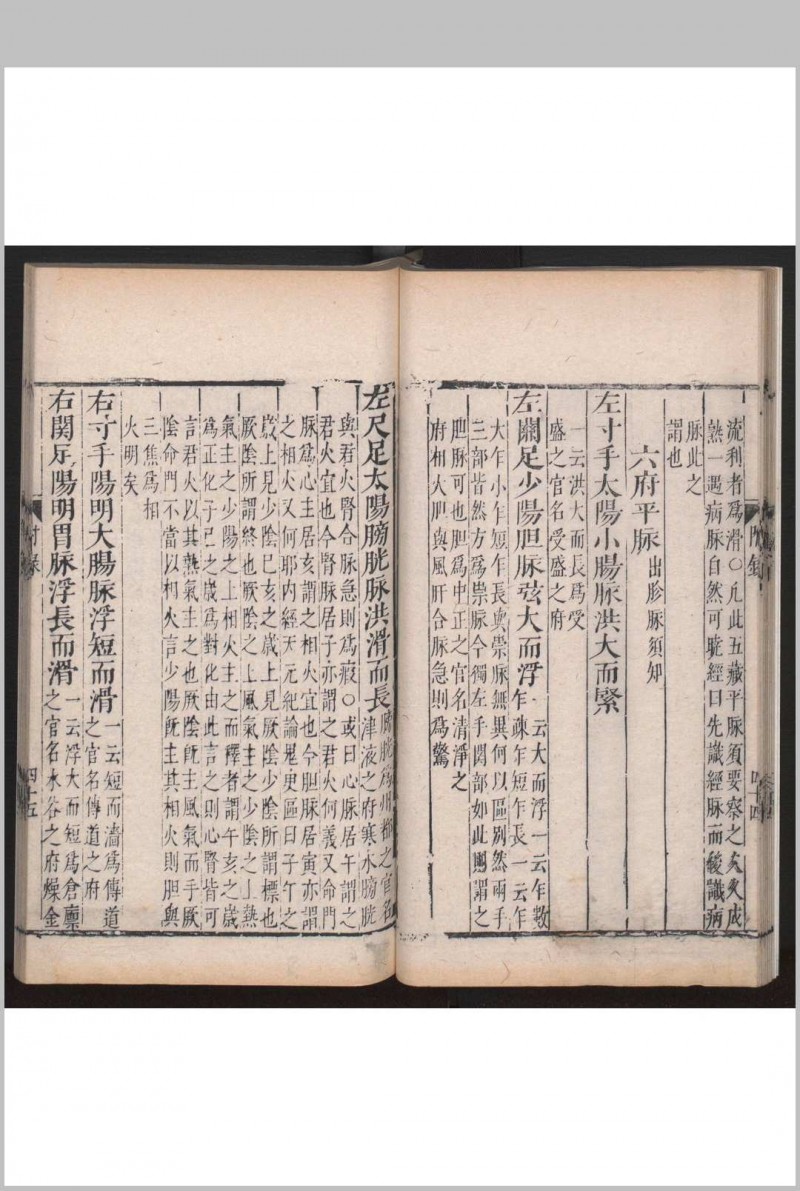 流利者爲滑○凡此五藏平脉須要察之久久成
熟一遇病脉自然可曉經曰先識經脉而後識病
脉此之
謂也
六府平脉出診脉須知
左寸手太陽小腸脉洪大而緊
一云洪大而長爲受
盛之官名受盛之府
左關足少陽胆脉弦大而浮一云大而浮一云乍數
乍疎乍短乍長一云乍
大乍小乍短乍長與祟脉無異何以區別然兩手
三部皆然方爲祟脉今獨左手関部如此則謂之
胆脉可也胆爲中正之官名清淨之
府相火胆與風肝合脉急則爲驚
四十四
左尺足太陽膀胱脉洪滑而長膀胱爲州都之官名
津液之府寒水膀胱
與君火腎合脉急則爲瘕○或曰心脉居午謂之
君火宜也今腎脉居子亦謂之君火何義又命門
脉爲心主居亥謂之相火宜也今胆脉居寅亦謂
之相火又何耶内經天元紀論鬼臾區曰子午之
歲上見少陰巳亥之歲上見厥陰少陰所謂標也
厥陰所謂終也厥陰之上風氣主之少陰之上熱
氣主之少陽之上相火主之而釋者謂午亥之歲
爲正化子巳之歲爲對化由此言之則心腎皆可
言君火以其熱氣主之也厥陰既主風氣而手厥
陰命門不當以相火言少陽既主其相火則胆與
三焦爲相
火明矣
右寸手陽明大腸脉浮短而滑一云短而濇爲傳道
之官名傳道之府
右関足陽明胃脉浮長而滑一云浮大而短爲倉廩
之官名水谷之府燥金
附録
四十五